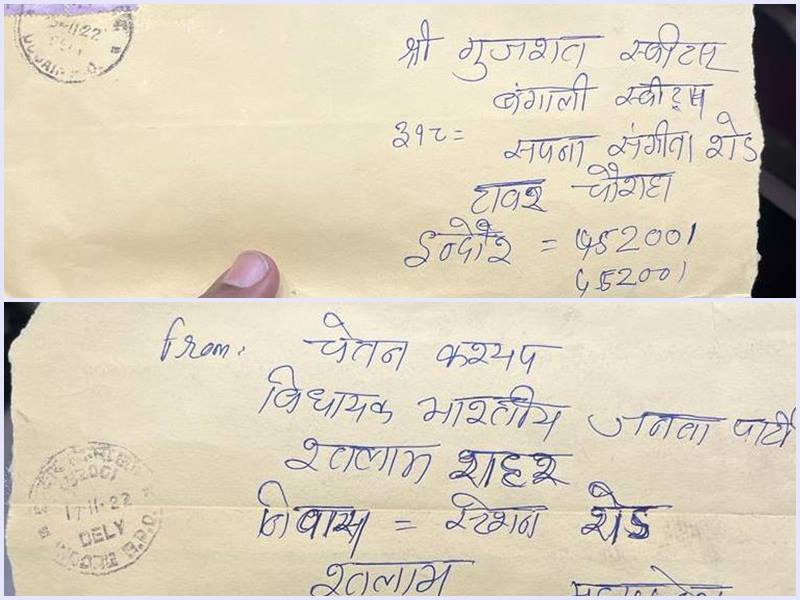 श्री गुजरात स्वीटस्
बंगाली स्वीट्स
३१८= सपना संगीता रोड
टावर चौराहा
इन्दौर = 452001
452001
From: चेतन कश्यप
विधायक भारतीय जनता पार्टी
रतलाम शहर
निवास = स्टेशन रोड
रतलाम
17-11-22
DELY
INDORE G.P.O.